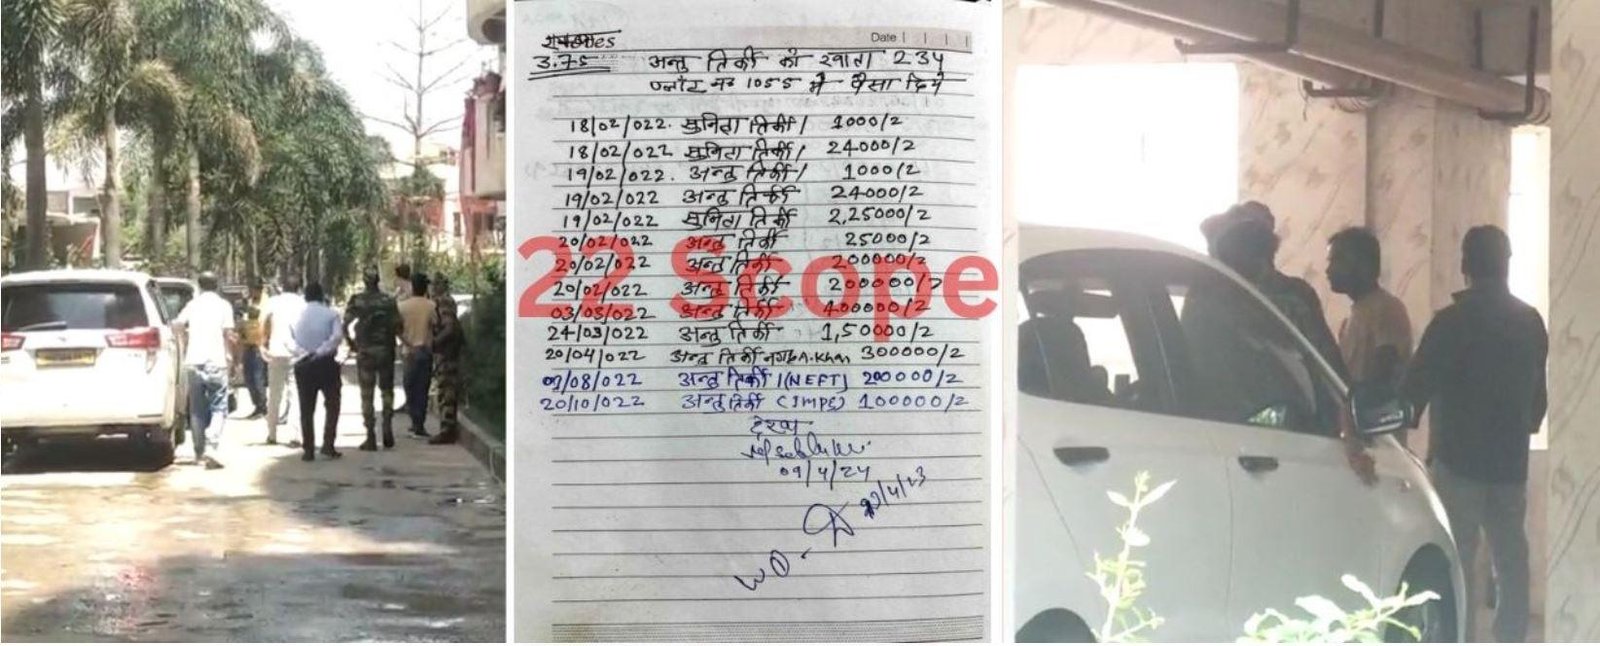 Date
3.75 अन्तु तिर्की को खाता 234
प्लौट नं० 1055 में पैसा दिये
18/02/022. सुनिता तिर्की / 1000/2
18/02/022 सुनिता तिर्की / 24000/2
19/02/022. अन्तु तिर्की / 1000/2
19/02/022 अन्तु तिर्की 24000/2
19/02/022 सुनिता तिर्की 2,25000/2
20/02/022 अन्तु तिर्की 25000/2
20/02/022 अन्तु तिर्की 200000/2
20/02/022 अन्तु तिर्की 200000/2
03/03/022 अन्तु तिर्की 400000/2
24/03/022 अन्तु तिर्की 1,50000/2
20/04/022 अन्तु तिर्की A.Khan 300000/2
/08/022 अन्तु तिर्की /(NEFT) 200000/2
20/10/022 अन्तु तिर्की (IMPS) 100000/2
09/4/24
/4/23
22 Scope